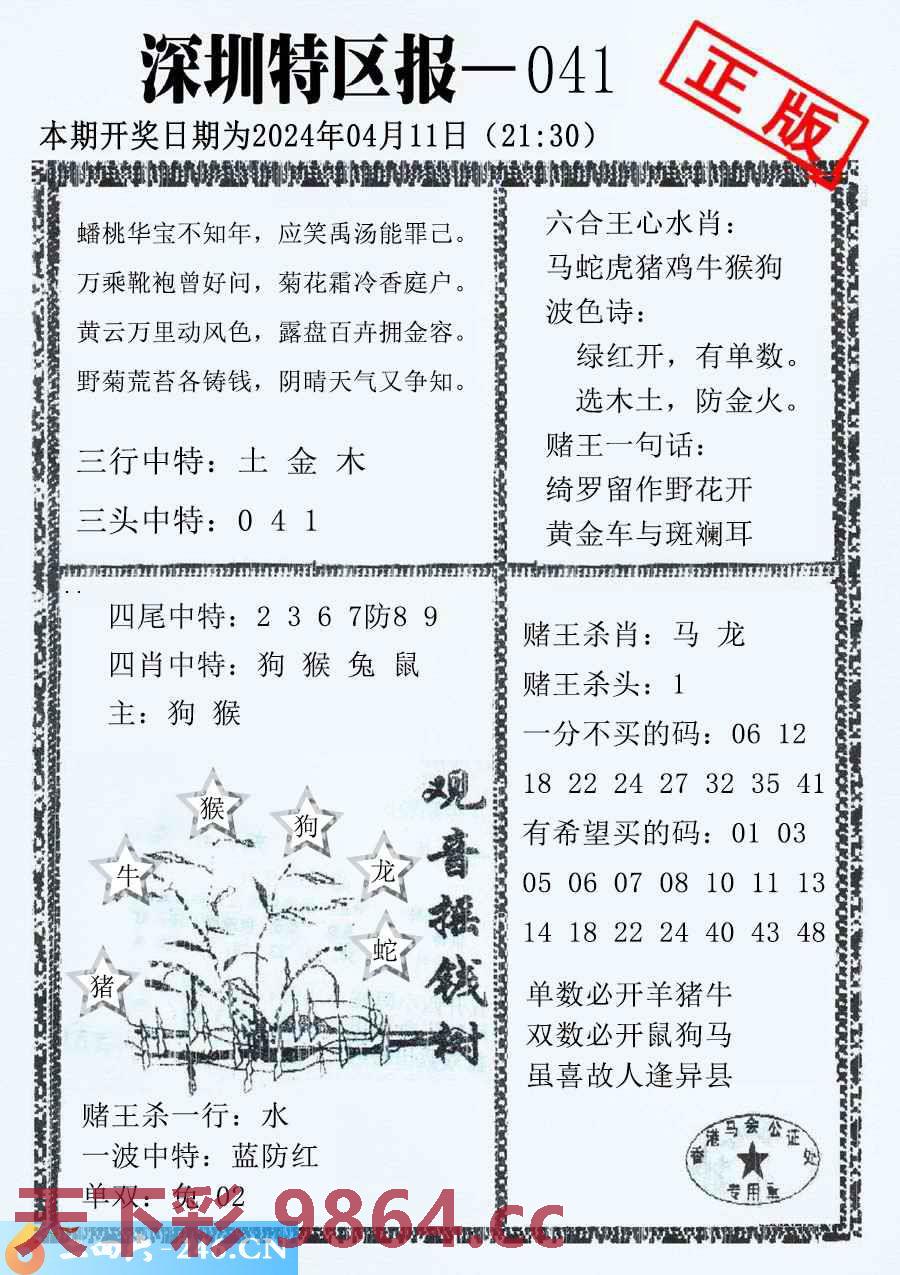 深圳特区报—041
正版
本期开奖日期为2024年04月11日（21:30）
蟠桃华宝不知年，应笑禹汤能罪己。
万乘靴袍曾好问，菊花霜冷香庭户。
黄云万里动风色，露盘百卉拥金容。
野菊荒苔各铸钱，阴晴天气又争知。
三行中特：土 金 木
三头中特：0 4 1
六合王心水肖：
马蛇虎猪鸡牛猴狗
波色诗：
绿红开，有单数。
选木土，防金火。
赌王一句话：
绮罗留作野花开
黄金车与斑斓耳
四尾中特：2 3 6 7防8 9
四肖中特：狗 猴 兔 鼠
主：狗 猴
观音摇钱树
猴
狗
牛
龙
蛇
猪
赌王杀一行：水
一波中特：蓝防红
单双：兔 02
赌王杀肖：马 龙
赌王杀头：1
一分不买的码：06 12
18 22 24 27 32 35 41
有希望买的码：01 03
05 06 07 08 10 11 13
14 18 22 24 40 43 48
单数必开羊猪牛
双数必开鼠狗马
虽喜故人逢异县
香港马会公证处
专用章
天下彩 9864.cc
-246.CN